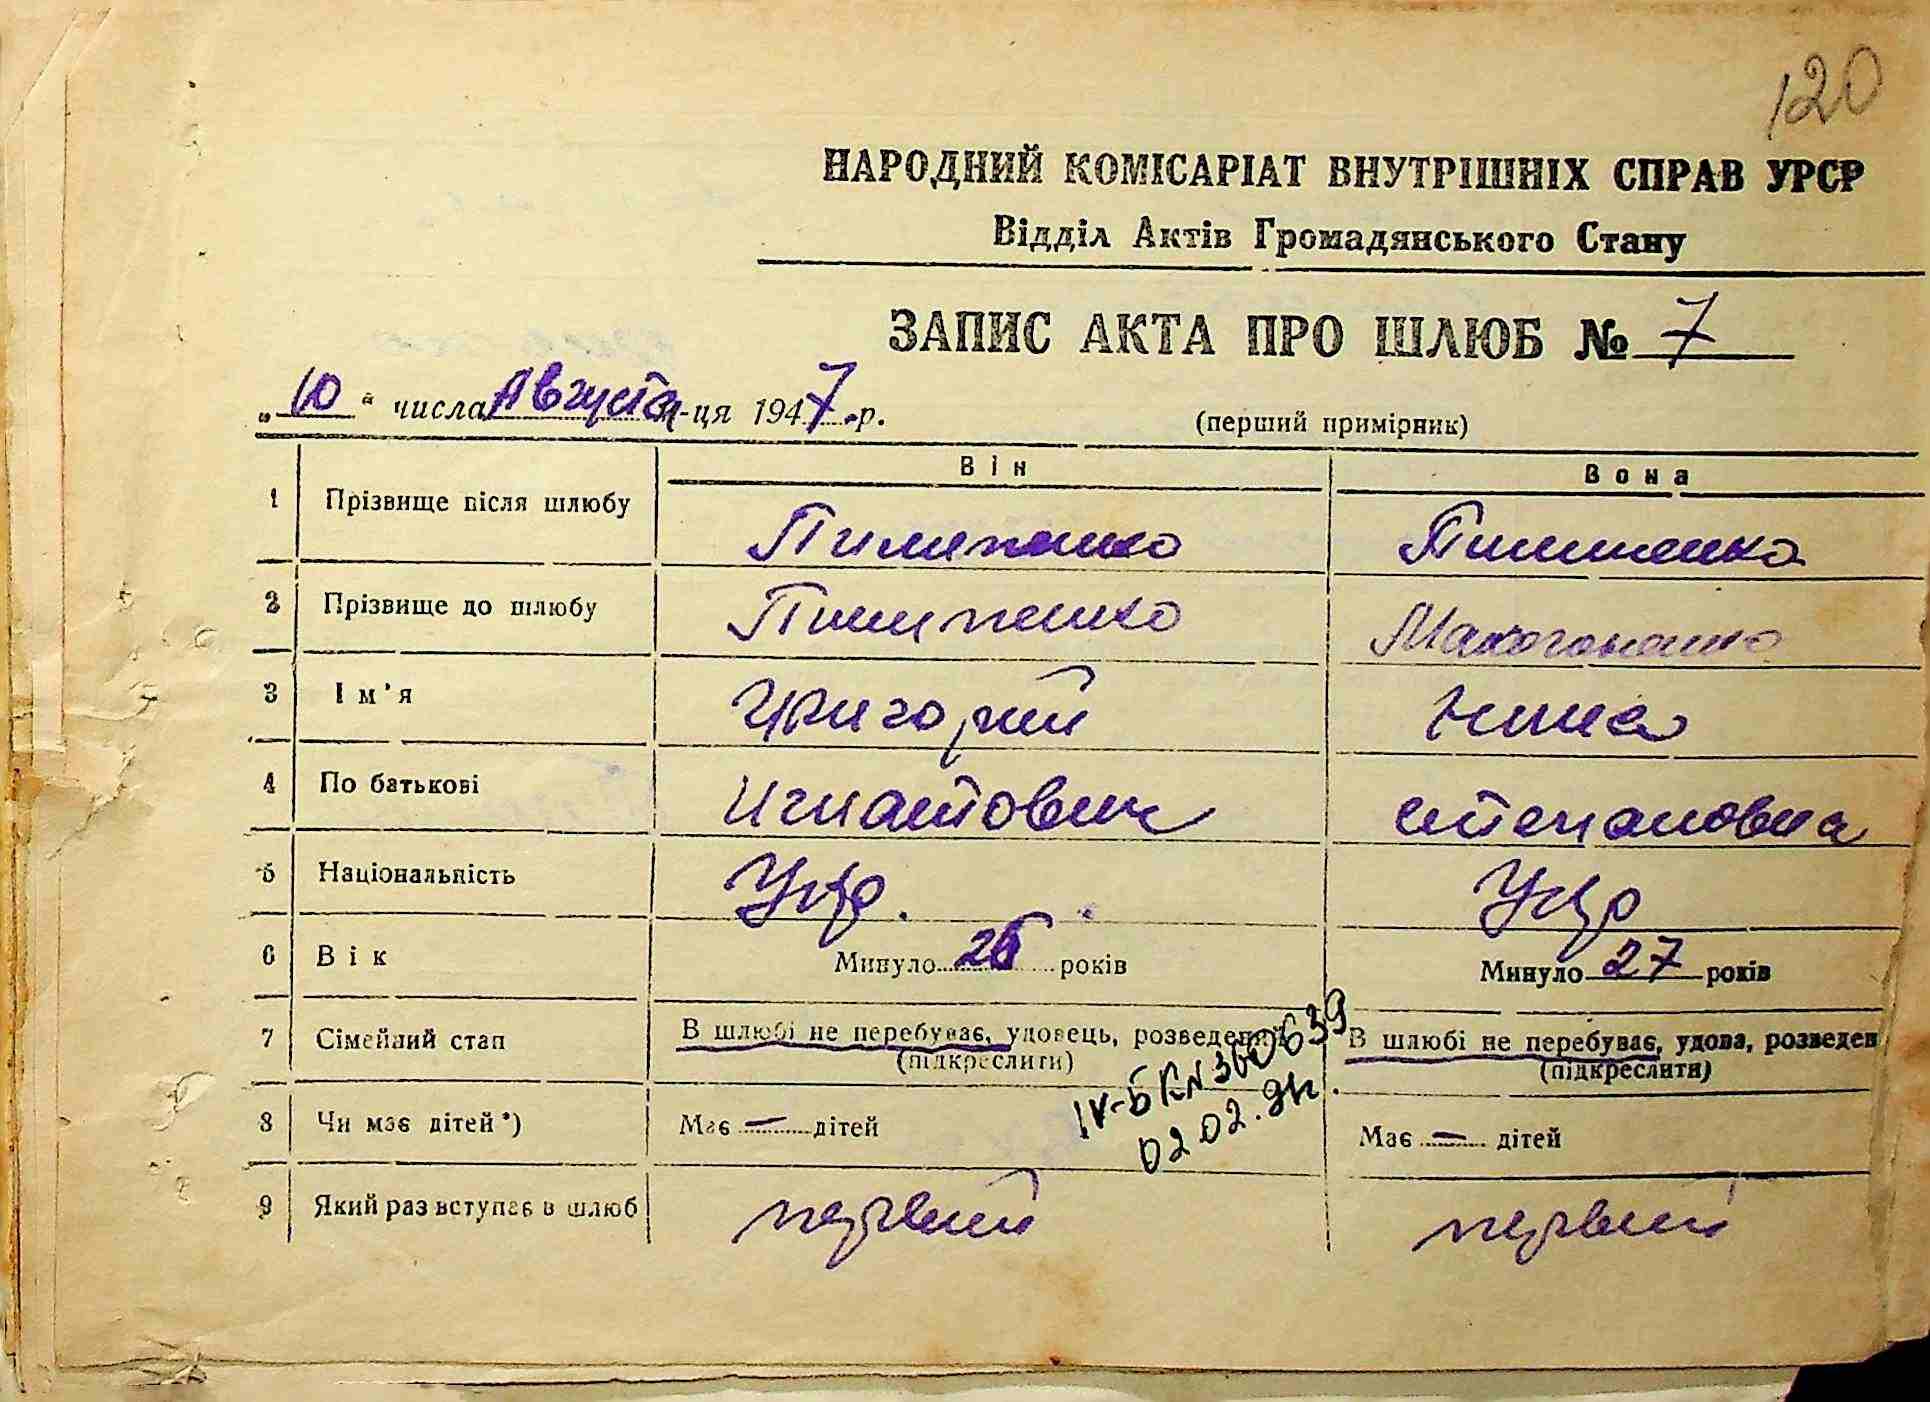 120
НАРОДНИЙ КОМІСАРІАТ ВНУТРІШНІХ СПРАВ УРСР
Відділ Актів Громадянського Стану
ЗАПИС АКТА ПРО ШЛЮБ № 7
„10“ числа Августа м-ця 1947 р.
(перший примірник)
Він Вона
1 Прізвище після шлюбу Пилипенко Пилипенко
2 Прізвище до шлюбу Пилипенко Макогоненко
3 Ім'я Григорий Нина
4 По батькові Игнатович Степановна
5 Національність Укр. Укр
6 Вік Минуло 26 років Минуло 27 років
7 Сімейний стан В шлюбі не перебуває, удовець, розведений В шлюбі не перебуває, удова, розведен
(підкреслити) (підкреслити)
IV-БК № 360639
02.02.94.
8 Чи має дітей*) Має — дітей Має — дітей
9 Який раз вступає в шлюб первий первий